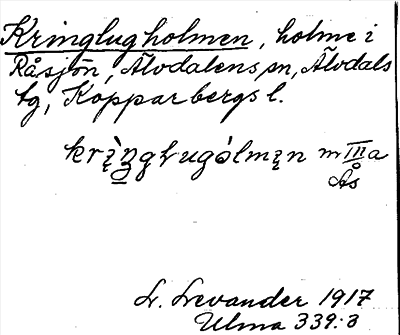 Kringlugholmen, holme i
Råsjön, Älvdalens sn, Älvdals
tg, Kopparbergs l.
krı̨̀ŋgługólmı̨n m III a
Ås
L. Levander 1917
Ulma 339:3